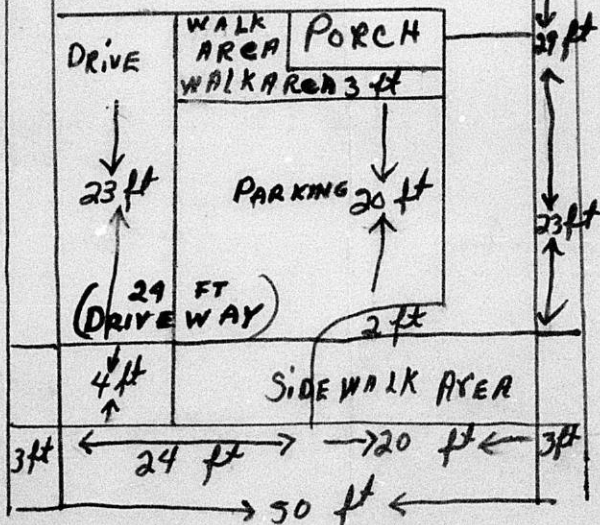 DRIVE
WALK
AREA
PORCH
WALK AREA 3 ft
29 ft
23 ft
PARKING 20 ft
23 ft
29 FT
(DRIVE WAY)
2 ft
4 ft
SIDEWALK AREA
3ft
24 ft
20 ft
3ft
50 ft